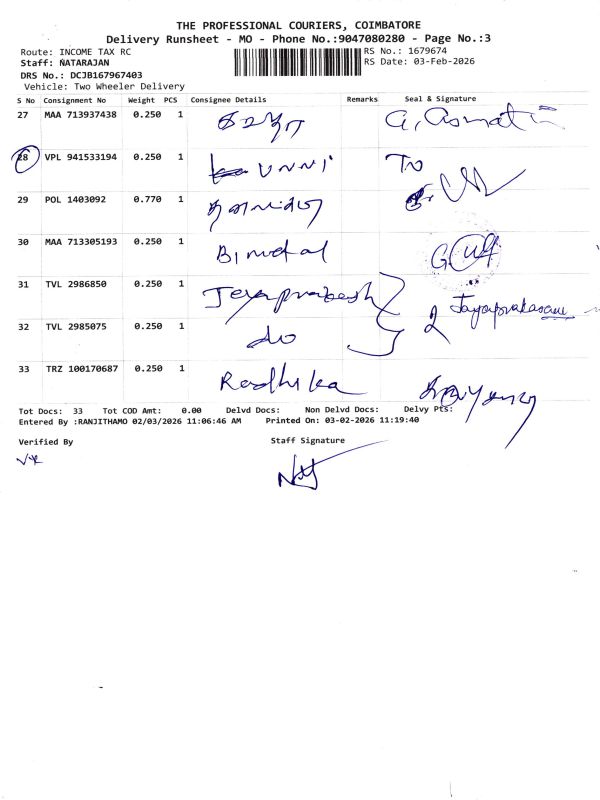 THE PROFESSIONAL COURIERS, COIMBATORE
Delivery Runsheet - MO - Phone No.:9047080280 - Page No.:3
Route: INCOME TAX RC RS No.: 1679674
Staff: NATARAJAN RS Date: 03-Feb-2026
DRS No.: DCJB167967403
Vehicle: Two Wheeler Delivery
S No Consignment No Weight PCS Consignee Details Remarks Seal & Signature
27 MAA 713937438 0.250 1
28 VPL 941533194 0.250 1 UNNI To
29 POL 1403092 0.770 1
30 MAA 713305193 0.250 1 Bimetal
31 TVL 2986850 0.250 1 Jeyaprakash 2 Jayaprakasam
32 TVL 2985075 0.250 1 do
33 TRZ 100170687 0.250 1 Radhika
Tot Docs: 33 Tot COD Amt: 0.00 Delvd Docs: Non Delvd Docs: Delvy Pts:
Entered By :RANJITHAMO 02/03/2026 11:06:46 AM Printed On: 03-02-2026 11:19:40
Verified By Staff Signature